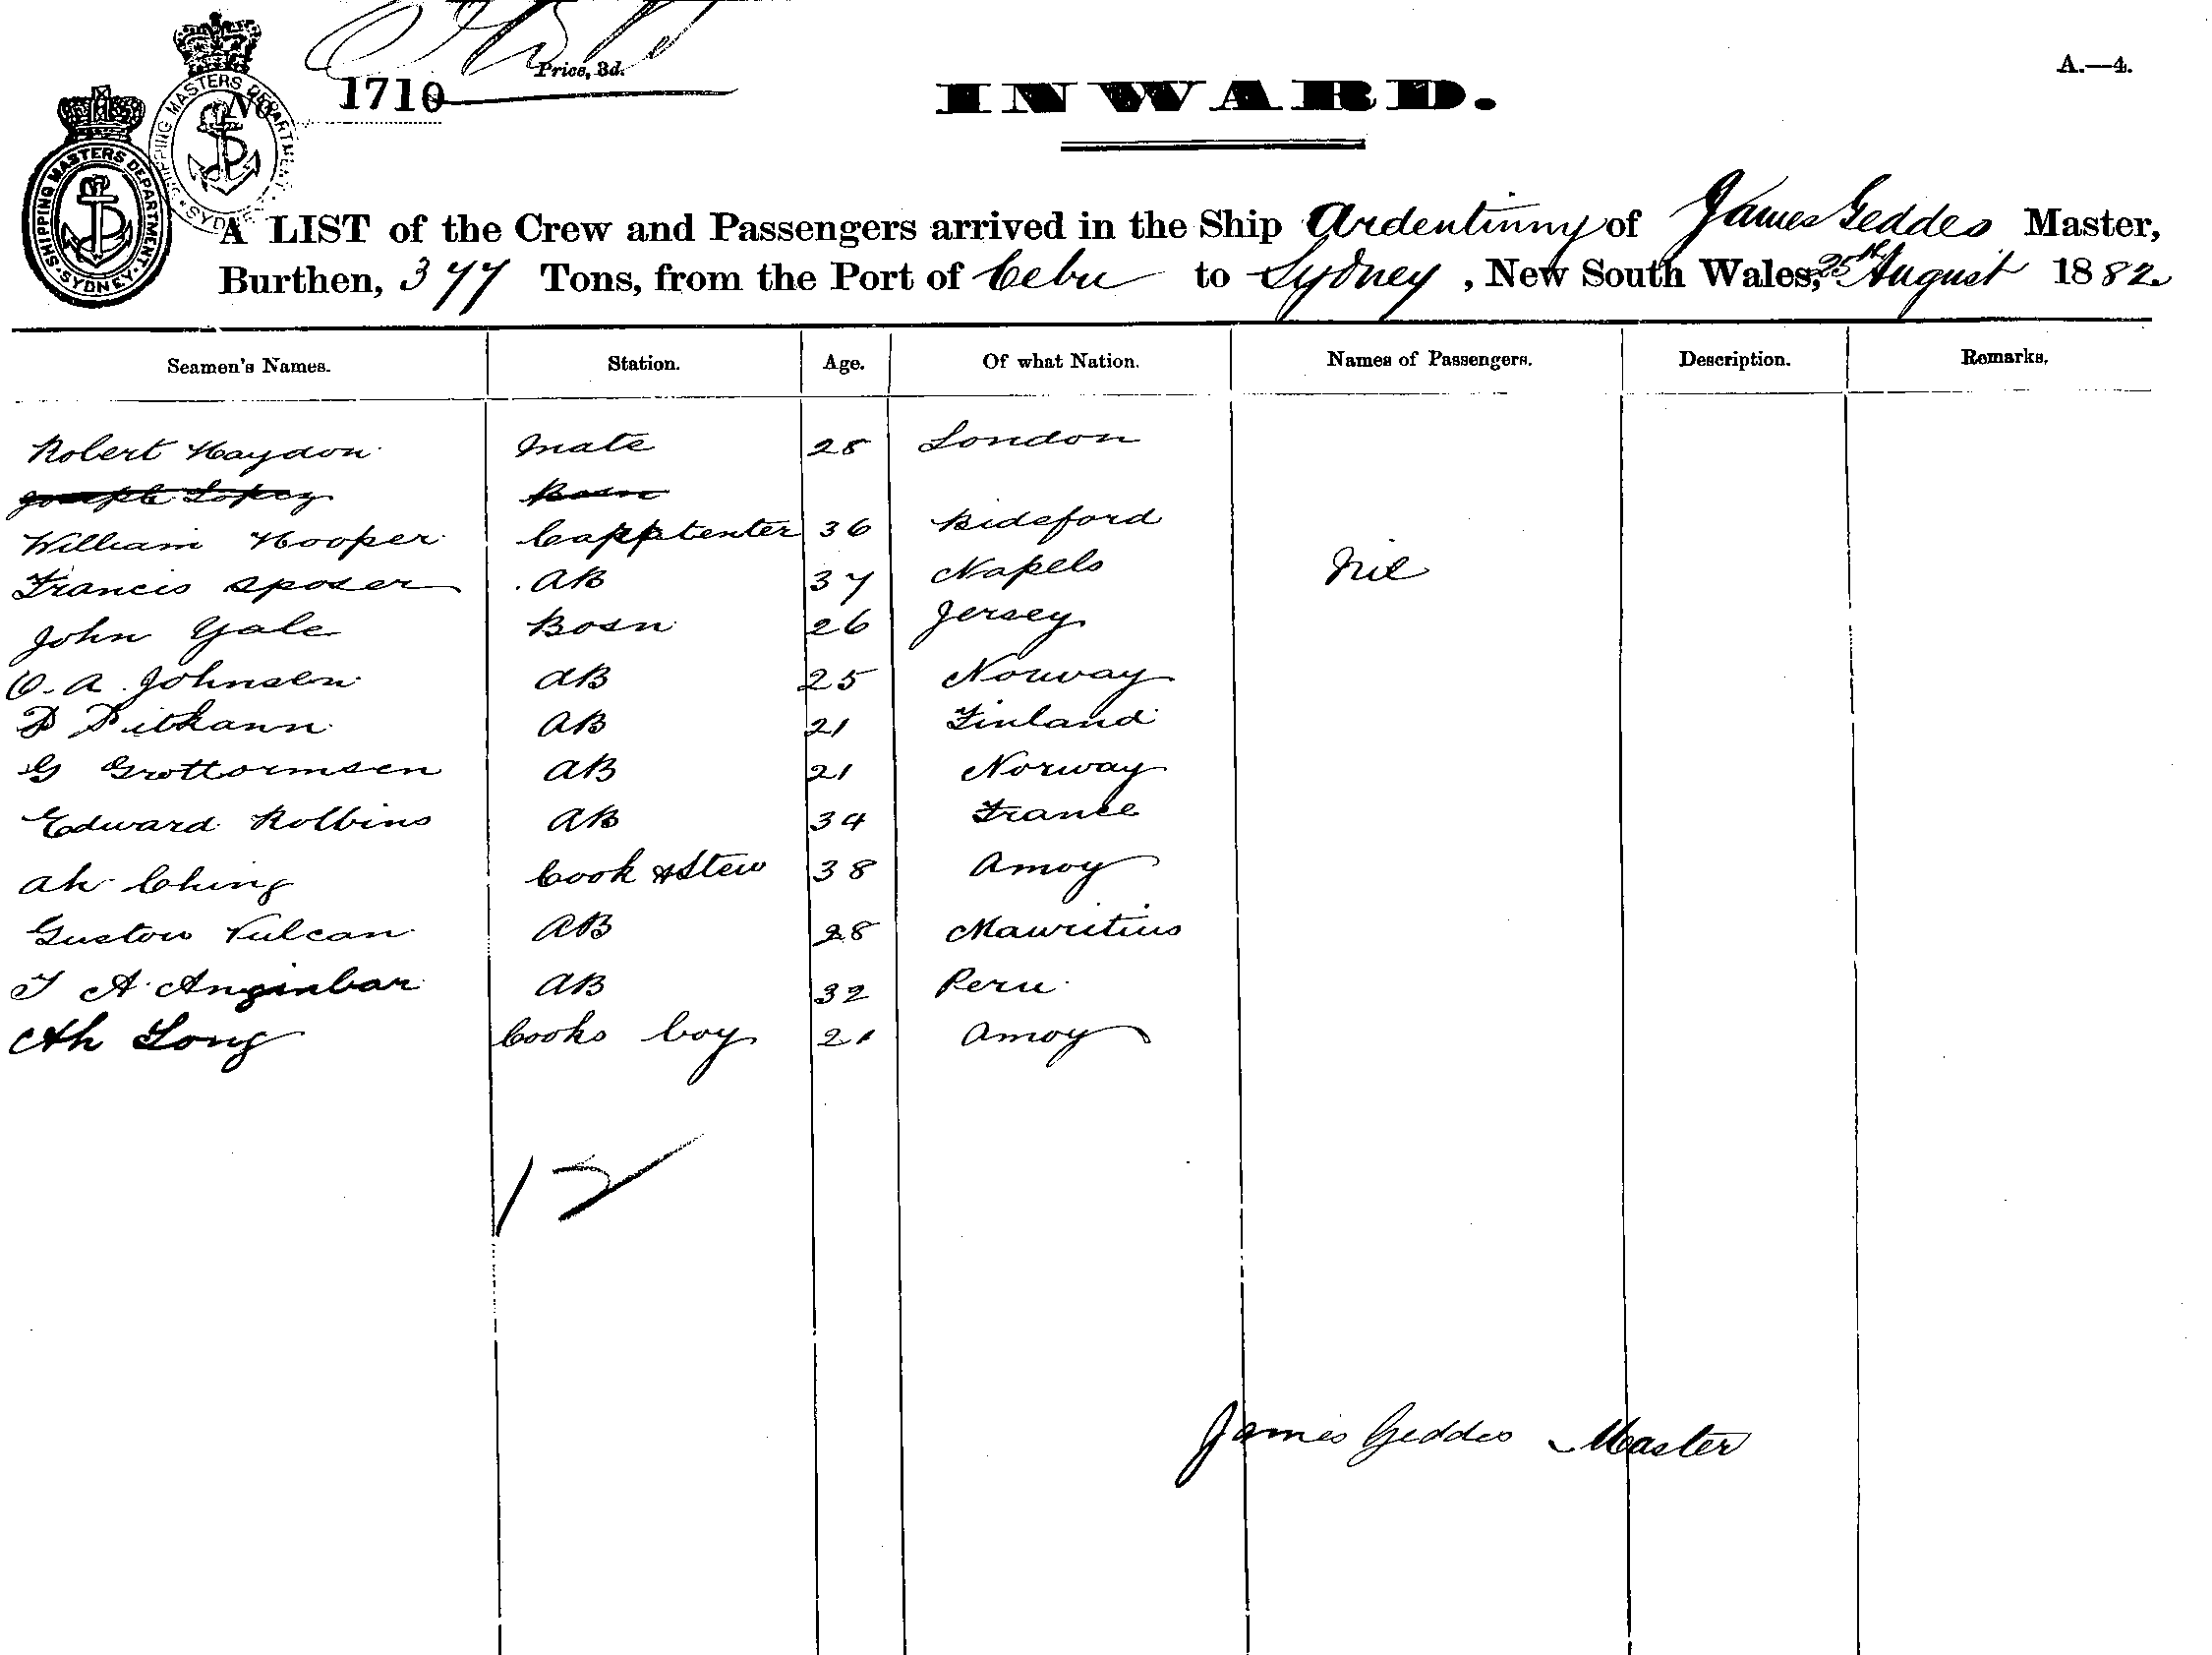 Price, 3d.
A.—4.
No 1710
INWARD.
SHIPPING MASTERS DEPARTMENT. SYDNEY.
SHIPPING MASTERS DEPARTMENT SYDNEY
A LIST of the Crew and Passengers arrived in the Ship Ardentinny of James Geddes Master,
Burthen, 377 Tons, from the Port of Cebu to Sydney, New South Wales, 25th August 1882
Seamen's Names. Station. Age. Of what Nation. Names of Passengers. Description. Remarks.
Robert Haydon Mate 28 London
Joseph Lopez Bosn
William Hooper Cappptenter 36 Bideford
Francis Sposer AB 37 Napels Nil
John Yale Bosn 26 Jersey
O. A. Johnsen AB 25 Norway
P Pitkann AB 21 Finland
G Grottormsen AB 21 Norway
Edward Robbins AB 34 France
Ah Ching Cook & Stew 38 Amoy
Gustow Vulcan AB 28 Mauritius
T A Anginbar AB 32 Peru
Ah Long Cooks boy 21 Amoy
12
James Geddes Master